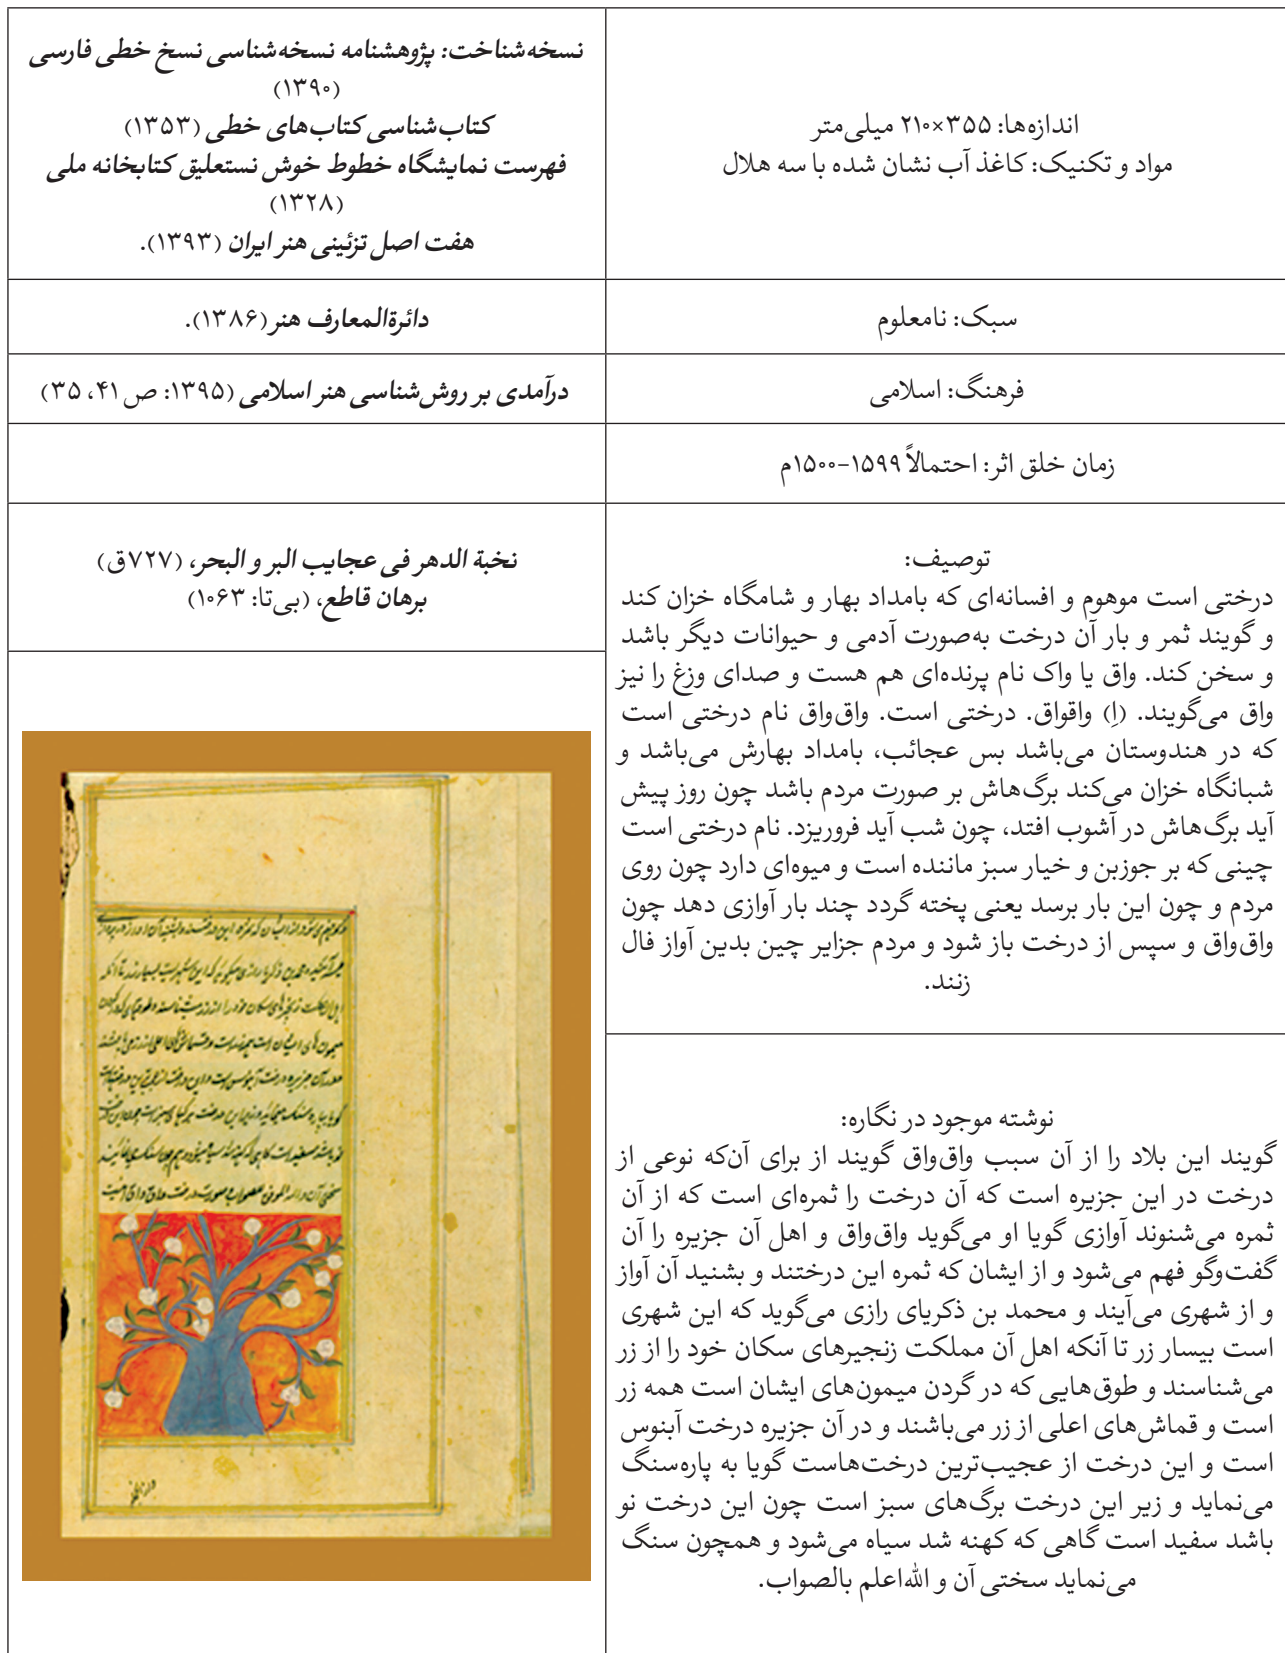 اندازه‌ها: ۳۵۵×۲۱۰ میلی‌متر
مواد و تکنیک: کاغذ آب نشان شده با سه هلال
نسخه‌شناخت: پژوهشنامه نسخه‌شناسی نسخ خطی فارسی
(۱۳۹۰)
کتاب‌شناسی کتاب‌های خطی (۱۳۵۳)
فهرست نمایشگاه خطوط خوش نستعلیق کتابخانه ملی
(۱۳۲۸)
هفت اصل تزئینی هنر ایران (۱۳۹۳).
سبک: نامعلوم
دائرةالمعارف هنر (۱۳۸۶).
فرهنگ: اسلامی
درآمدی بر روش‌شناسی هنر اسلامی (۱۳۹۵: ص ۴۱، ۳۵)
زمان خلق اثر: احتمالاً ۱۵۹۹-۱۵۰۰م
توصیف:
درختی است موهوم و افسانه‌ای که بامداد بهار و شامگاه خزان کند
و گویند ثمر و بار آن درخت به‌صورت آدمی و حیوانات دیگر باشد
و سخن کند. واق یا واک نام پرنده‌ای هم هست و صدای وزغ را نیز
واق می‌گویند. (اِ) واقواق. درختی است. واق‌واق نام درختی است
که در هندوستان می‌باشد بس عجائب، بامداد بهارش می‌باشد و
شبانگاه خزان می‌کند برگ‌هاش بر صورت مردم باشد چون روز پیش
آید برگ‌هاش در آشوب افتد، چون شب آید فروریزد. نام درختی است
چینی که بر جوزبن و خیار سبز ماننده است و میوه‌ای دارد چون روی
مردم و چون این بار برسد یعنی پخته گردد چند بار آوازی دهد چون
واق‌واق و سپس از درخت باز شود و مردم جزایر چین بدین آواز فال
زنند.
نخبة الدهر فی عجایب البر و البحر، (۷۲۷ق)
برهان قاطع، (بی‌تا: ۱۰۶۳)
نوشته موجود در نگاره:
گویند این بلاد را از آن سبب واق‌واق گویند از برای آن‌که نوعی از
درخت در این جزیره است که آن درخت را ثمره‌ای است که از آن
ثمره می‌شنوند آوازی گویا او می‌گوید واق‌واق و اهل آن جزیره را آن
گفت‌وگو فهم می‌شود و از ایشان که ثمره این درختند و بشنید آن آواز
و از شهری می‌آیند و محمد بن ذکریای رازی می‌گوید که این شهری
است بیسار زر تا آنکه اهل آن مملکت زنجیرهای سکان خود را از زر
می‌شناسند و طوق‌هایی که در گردن میمون‌های ایشان است همه زر
است و قماش‌های اعلی از زر می‌باشند و در آن جزیره درخت آبنوس
است و این درخت از عجیب‌ترین درخت‌هاست گویا به پاره‌سنگ
می‌نماید و زیر این درخت برگ‌های سبز است چون این درخت نو
باشد سفید است گاهی که کهنه شد سیاه می‌شود و همچون سنگ
می‌نماید سختی آن و الله‌اعلم بالصواب.